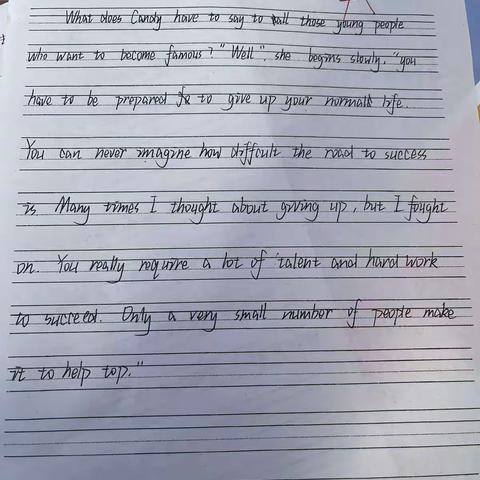 What does Candy have to say to all those young people
who want to become famous? "Well", she begins slowly, "you
have to be prepared to give up your normal life.
You can never imagine how difficult the road to success
is. Many times I thought about giving up, but I fought
on. You really require a lot of talent and hard work
to succeed. Only a very small number of people make
it to help top."